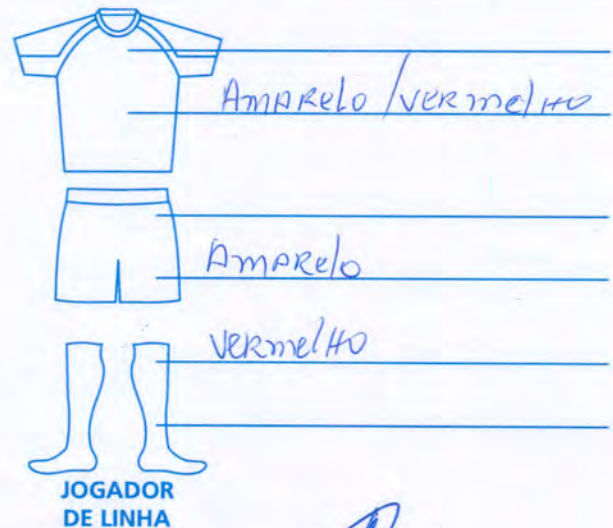 AMARelo / VERmelHO
AMARelo
VERmelHO
JOGADOR
DE LINHA